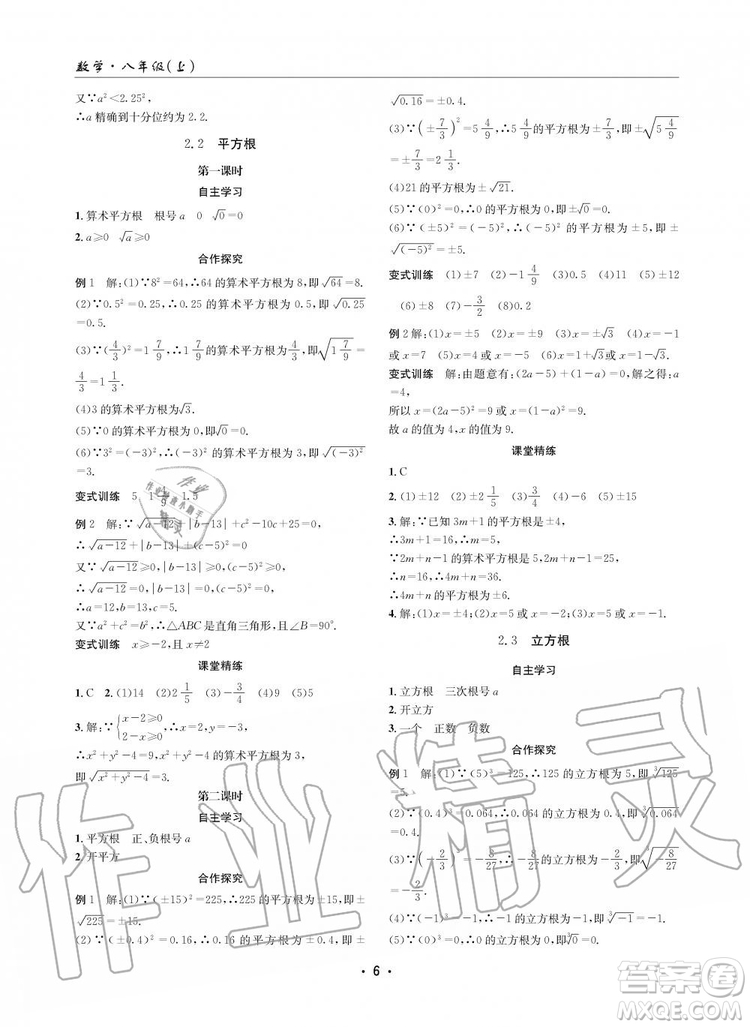 数学·八年级(上)
又∵a²<2.25²,
∴a精确到十分位约为2.2.
2.2 平方根
第一课时
自主学习
1. 算术平方根 根号a 0 √0=0
2. a≥0 √a≥0
合作探究
例1 解:(1)∵8²=64,∴64的算术平方根为8,即√64=8.
(2)∵0.5²=0.25,∴0.25的算术平方根为0.5,即√0.25
=0.5.
(3)∵(4/3)²=1 7/9,∴1 7/9的算术平方根为4/3,即√(1 7/9)=4/3
=1 1/3.
(4)3的算术平方根为√3.
(5)∵0²=0,∴0的算术平方根为0,即√0=0.
(6)∵√(-3)²=3,∴(-3)²的算术平方根为3,即√(-3)²
=3.
变式训练 5 1.5
例2 解:∵√(a-12)+|b-13|+c²-10c+25=0,
∴√(a-12)+|b-13|+(c-5)²=0.
又∵√(a-12)≥0,|b-13|≥0,(c-5)²≥0,
∴a=12,b=13,c=5.
又∵a²+c²=b²,∴△ABC是直角三角形,且∠B=90°.
变式训练 x≥-2,且x≠2
课堂精练
1. C 2. (1)14 (2)2 1/5 (3)-3/4 (4)4 (5)2/5
3. 解:∵{x-2≥0 2-x≥0,∴x=2,y=-3.
∴x²+y²-4=9,∴x²+y²-4的算术平方根为3,
即√(x²+y²-4)=3.
第二课时
自主学习
1. 平方根 正、负根号a
2. 开平方
合作探究
例1 解:(1)∵(±15)²=225,∴225的平方根为±15,即±
√225=±15.
(2)∵(±0.4)²=0.16,∴0.16的平方根为±0.4,即±
√0.16=±0.4.
(3)∵(±7/3)²=5 4/9,∴5 4/9的平方根为±7/3,即±√(5 4/9)
=±7/3=±2 1/3.
(4)21的平方根为±√21.
(5)∵(0)²=0,∴0的平方根为0,即√0=0.
(6)∵(±5)²=(-5)²,∴(-5)²的平方根为±5,即±
√(-5)²=±5.
变式训练 (1)±7 (2)-1 4/9 (3)0.5 (4)±11 (5)±12
(6)±8 (7)-3/2 (8)0.2
例2 解:(1)x=±5 (2)x=±4/9 (3)x=±4 (4)x=-1
或x=7 (5)x=4或x=-2 (6)x=1+√3或x=1-√3
变式训练 解:由题意有:(2a-5)+(1-a)=0,解之得:a
=4,
所以x=(2a-5)²=9或x=(1-a)²=9.
故a的值为4,x的值为9.
课堂精练
1. C
2. (1)±12 (2)±5 (3)-1 1/2 (4)2 2/5 (5)±3
3. 解:∵已知3m+1的平方根为±4,
∴3m+1=16,∴m=5.
∵2m+n-1的平方根为±5,∴2m+n-1=25,
∴n=16,∴4m+n=36,
∴4m+n的平方根为±6.
4. 解:(1)x=±4;(2)x=±5/2;(3)x=-1或x=3.
2.3 立方根
自主学习
1. 立方根 三次根号a
2. 开立方
3. 一个 正数 负数
合作探究
例1 解:(1)∵(5)³=125,∴125的立方根为5,即∛125
=5.
(2)∵(0.4)³=0.064,∴0.064的立方根为0.4,即∛0.064
=0.4.
(3)∵(-2/3)³=-8/27,∴-8/27的立方根为-2/3,即∛(-8/27)
=-2/3.
(4)∵(-1)³=-1,∴-1的立方根为-1,即∛-1=-1.
(5)∵(0)³=0,∴0的立方根为0,即∛0=0.
· 6 ·
作业精灵
答案圈
MXQE.COM